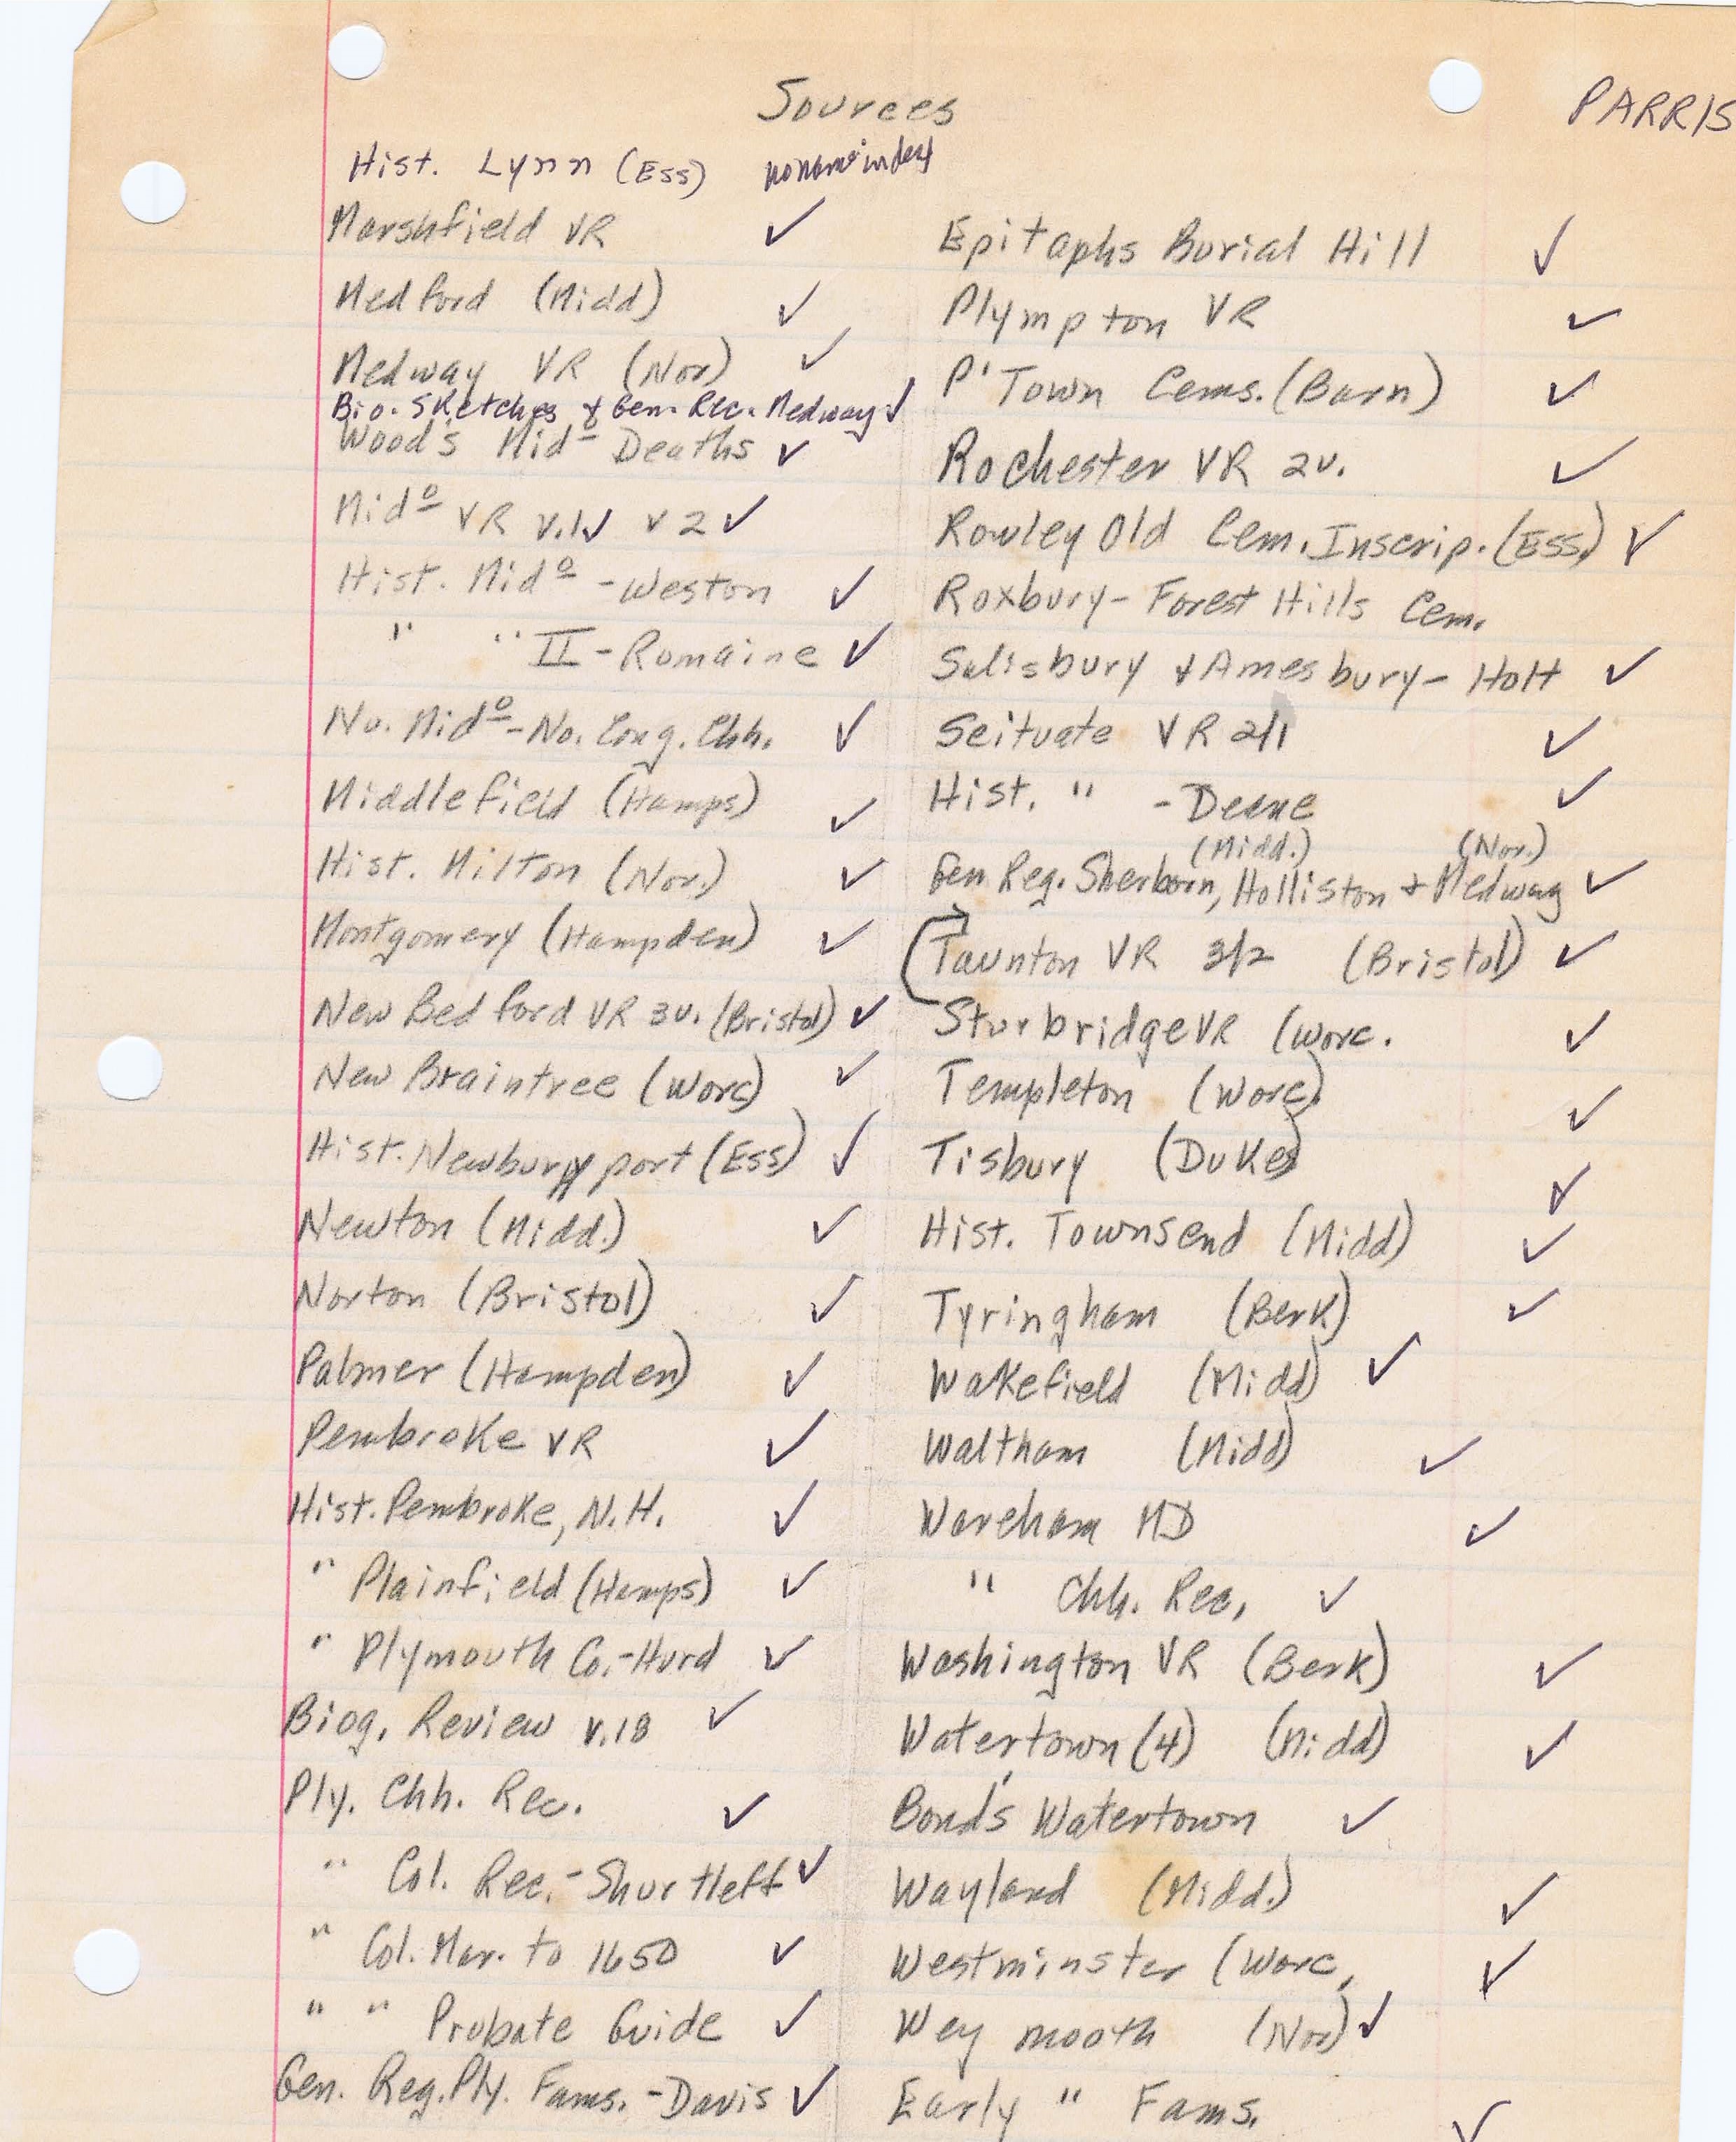 Sources
PARRIS
Hist. Lynn (Ess) no name index
Marshfield VR ✓
Medford (Midd) ✓
Medway VR (Nor) ✓
Bio. Sketches & Gen. Rec. Medway ✓
Wood's Mid⁰ Deaths ✓
Mid⁰ VR v.1 ✓ v 2 ✓
Hist. Mid⁰ - Weston ✓
" " II - Romaine ✓
No. Mid⁰ - No. Cong. Chh. ✓
Middlefield (Hamps) ✓
Hist. Milton (Nor.) ✓
Montgomery (Hampden) ✓
New Bedford VR 3v. (Bristol) ✓
New Braintree (Worc) ✓
Hist. Newburyport (Ess) ✓
Newton (Midd.) ✓
Norton (Bristol) ✓
Palmer (Hampden) ✓
Pembroke VR ✓
Hist. Pembroke, N.H. ✓
" Plainfield (Hamps) ✓
" Plymouth Co. - Hurd ✓
Biog. Review v.18 ✓
Ply. Chh. Rec. ✓
" Col. Rec. - Shurtleff ✓
" Col. Mar. to 1650 ✓
" " Probate Guide ✓
Gen. Reg. Ply. Fams. - Davis ✓
Epitaphs Burial Hill ✓
Plympton VR ✓
P'Town Cems. (Barn) ✓
Rochester VR 2v. ✓
Rowley Old Cem. Inscrip. (Ess) ✓
Roxbury - Forest Hills Cem.
Salisbury & Amesbury - Hoyt ✓
Scituate VR 2/1 ✓
Hist. " - Deane ✓
(Midd.) (Nor.)
Gen Reg. Sherborn, Holliston & Medway ✓
Taunton VR 3/2 (Bristol) ✓
Sturbridge VR (Worc. ✓
Templeton (Worc) ✓
Tisbury (Dukes) ✓
Hist. Townsend (Midd) ✓
Tyringham (Berk) ✓
Wakefield (Midd) ✓
Waltham (Midd) ✓
Wareham MD ✓
" Chh. Rec. ✓
Washington VR (Berk) ✓
Watertown (4) (Midd) ✓
Bond's Watertown ✓
Wayland (Midd.) ✓
Westminster (Worc, ✓
Weymouth (Nor) ✓
Early " Fams. ✓